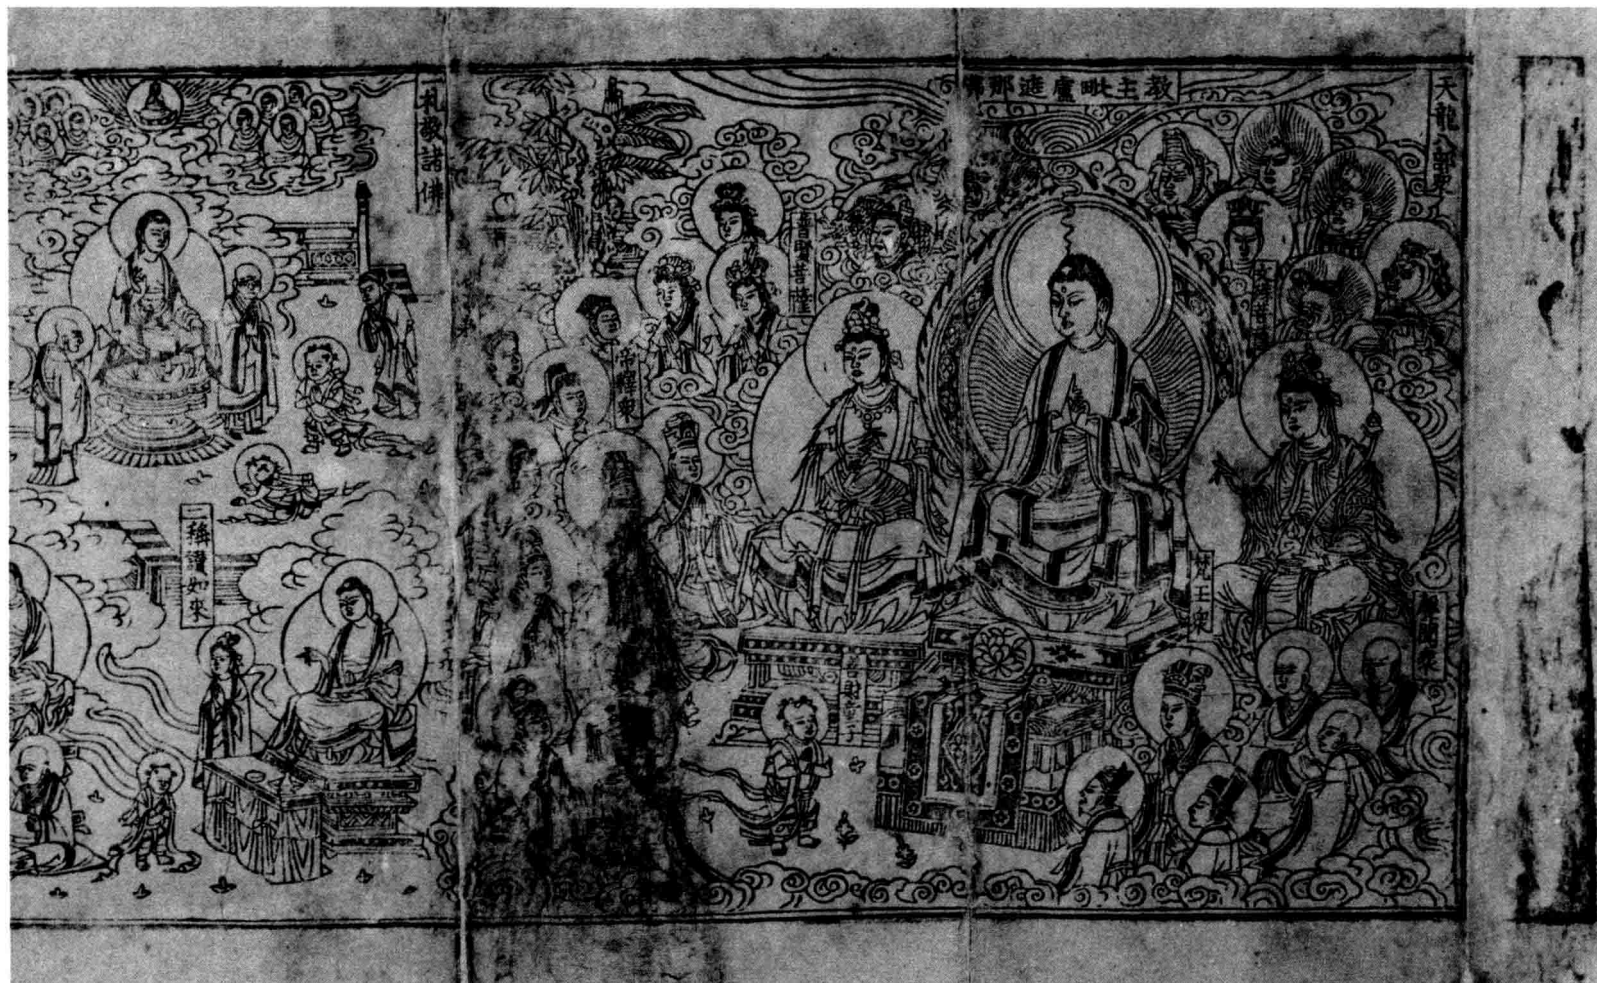 天龍八部衆
教主毗盧遮那佛
文殊菩薩
普賢菩薩
帝釋衆
梵王衆
善財童子
礼敬諸佛
二稱讃如來